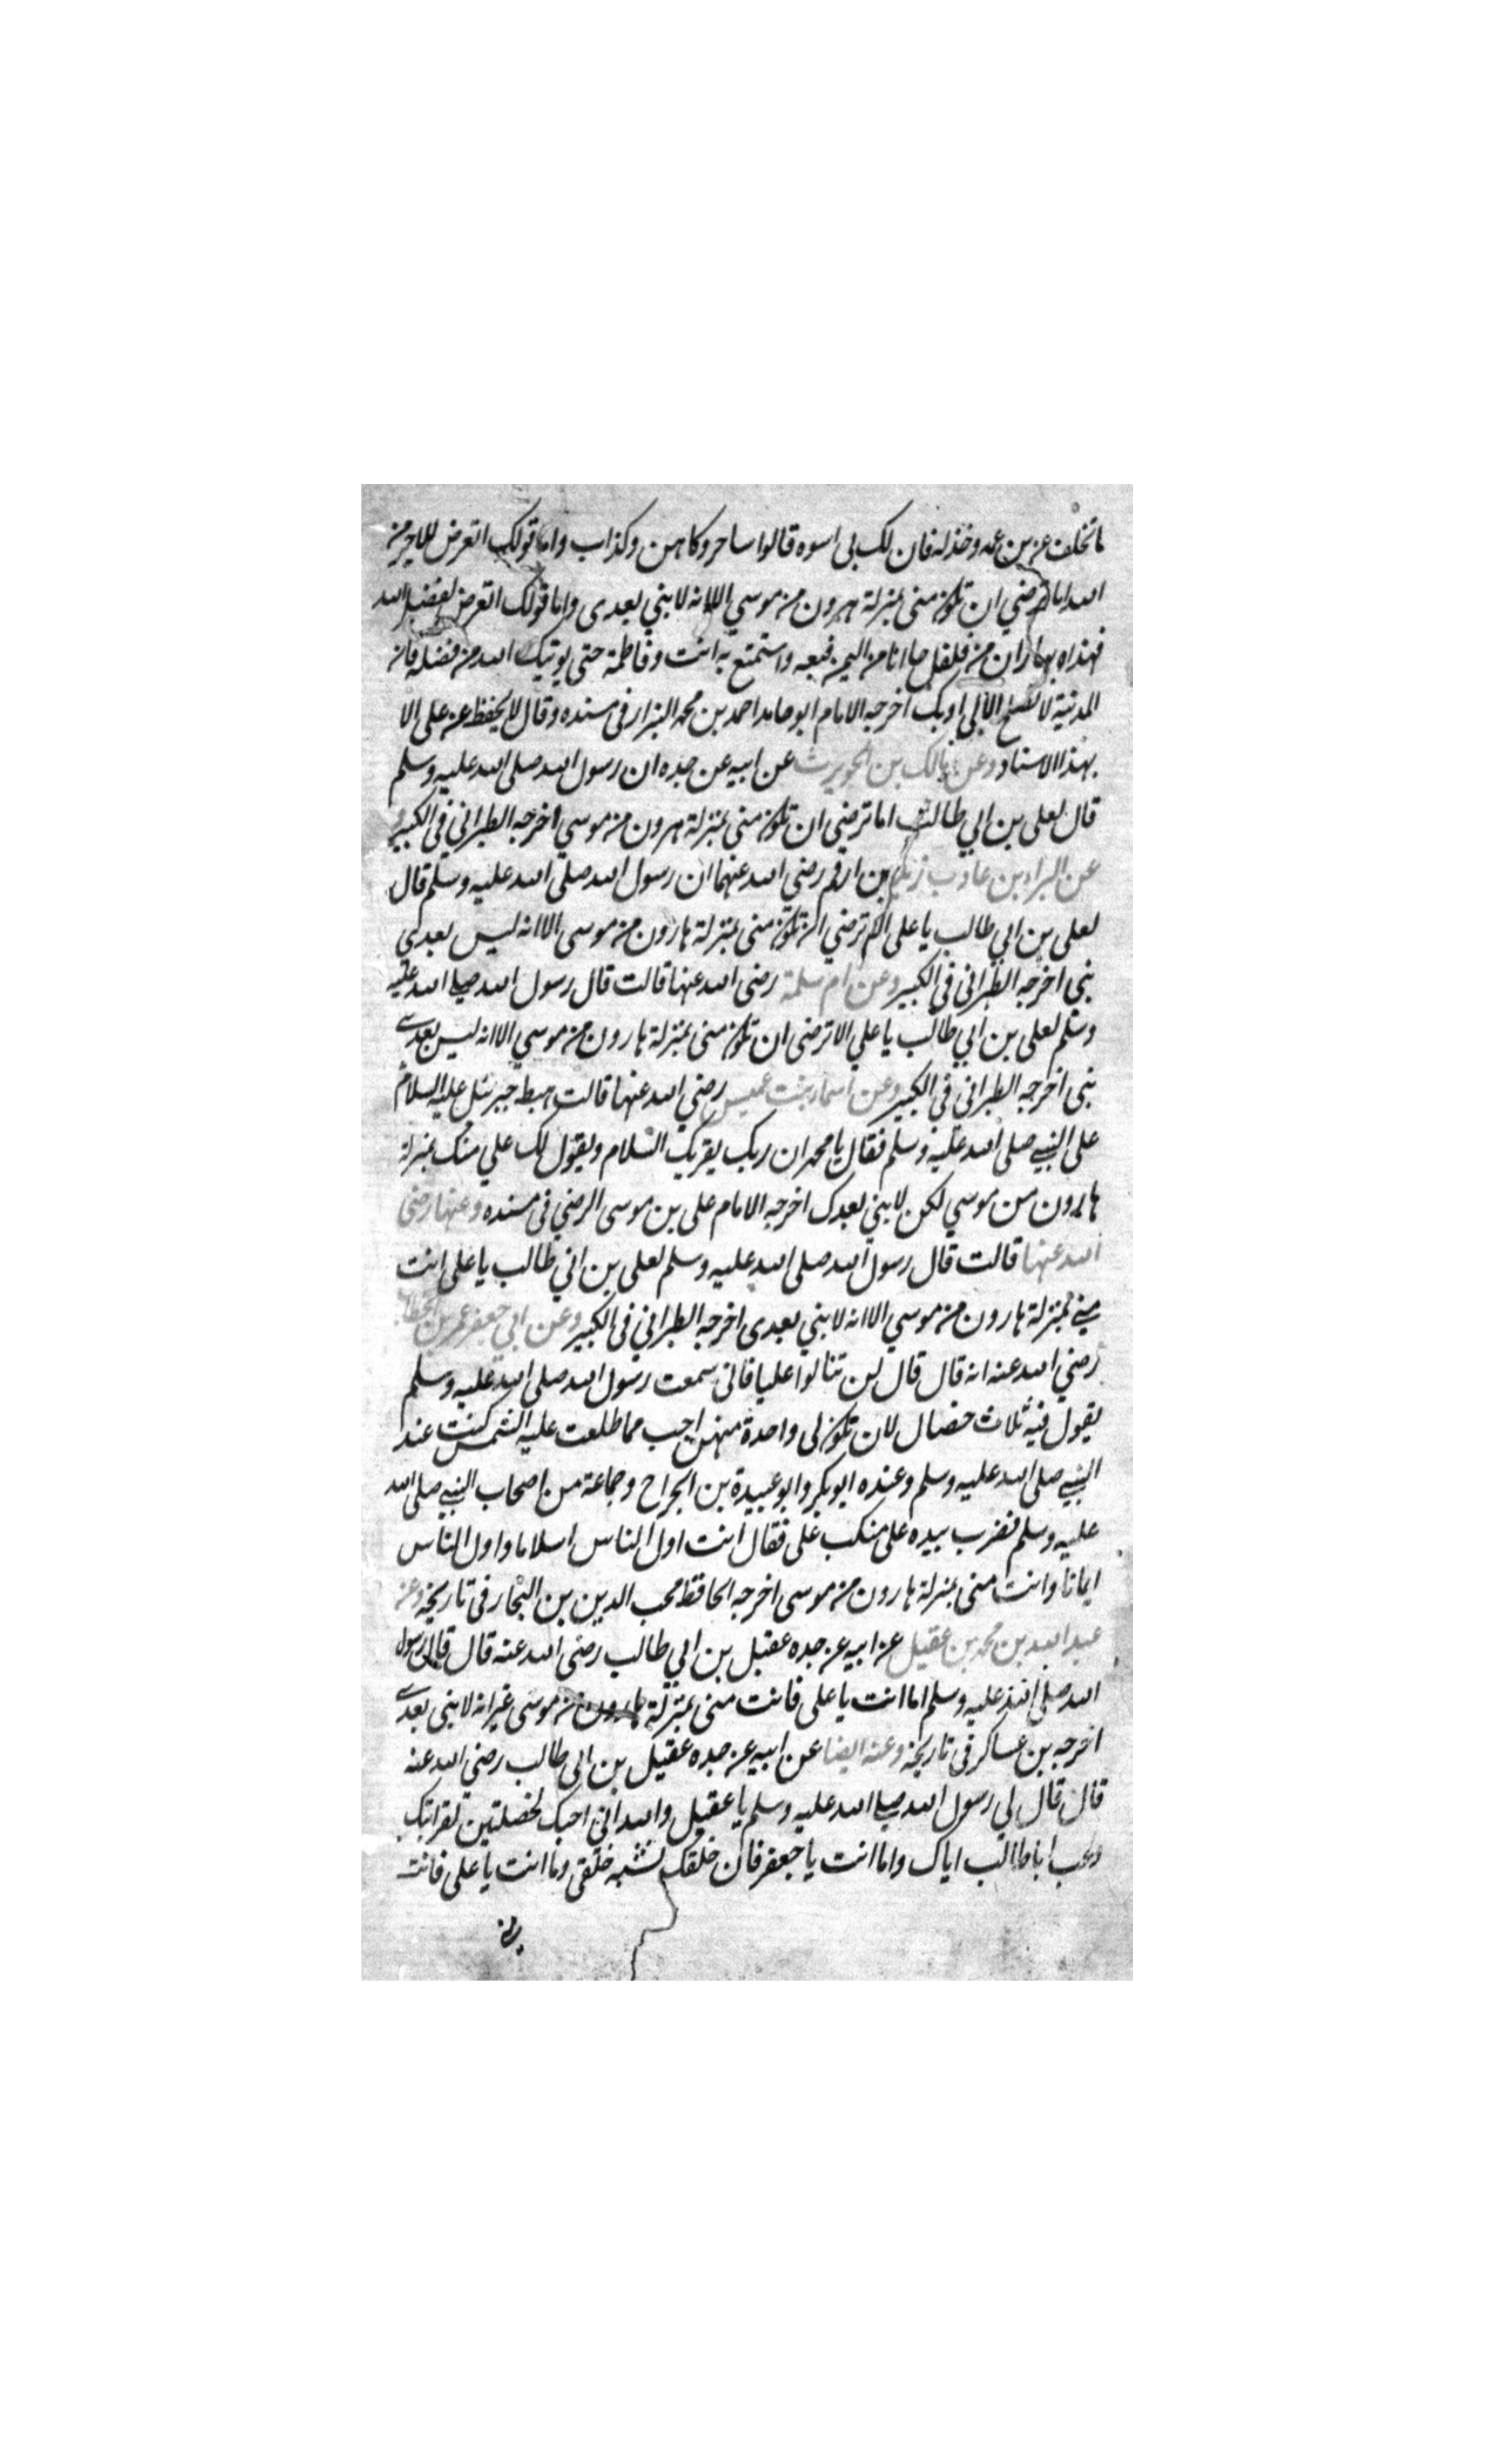 ما تخلف عن بن عمه وخذله فان لک بی اسوه قالوا ساحر وکاهن وکذاب واما قولک اتعرض للاجر من
الله اما ترضی ان تکون منی بمنزلة هرون من موسی الا انه لا نبی بعدی واما قولک اتعرض لفضل الله
فهذا بهاران من فلفل جاانا من الیمن فبعه واستمتع به انت وفاطمة حتی یوتیک الله من فضله فان
المدینة لا تصلح الا بی او بک اخرجه الامام ابو حامد احمد بن محمد البزار فی مسنده وقال لا یحفظ عن علی الا
بهذا الاسناد وعن مالک بن الحویرث عن ابیه عن جده ان رسول الله صلی الله علیه وسلم
قال لعلی بن ابی طالب اما ترضی ان تکون منی بمنزلة هرون من موسی اخرجه الطبرانی فی الکبیر و
عن البراء بن عازب زید بن ارقم رضی الله عنهما ان رسول الله صلی الله علیه وسلم قال
لعلی بن ابی طالب یا علی الم ترضی ان تکون منی بمنزلة هارون من موسی الا انه لیس بعدی
نبی اخرجه الطبرانی فی الکبیر وعن ام سلمة رضی الله عنها قالت قال رسول الله صلی الله علیه
وسلم لعلی بن ابی طالب یا علی الا ترضی ان تکون منی بمنزلة هارون من موسی الا انه لیس بعدی
نبی اخرجه الطبرانی فی الکبیر وعن اسماء بنت عمیس رضی الله عنها قالت هبط جبرئیل علیه السلام
علی النبی صلی الله علیه وسلم فقال یا محمد ان ربک یقریک السلام ویقول لک علی منک بمنزلة
هارون من موسی لکن لا نبی بعدک اخرجه الامام علی بن موسی الرضی فی مسنده وعنها رضی
الله عنها قالت قال رسول الله صلی الله علیه وسلم لعلی بن ابی طالب یا علی انت
منی بمنزلة هارون من موسی الا انه لا نبی بعدی اخرجه الطبرانی فی الکبیر وعن ابی جعفر عمر بن الخطاب
رضی الله عنه انه قال قال لن تنالوا علیا فانی سمعت رسول الله صلی الله علیه وسلم
یقول فیه ثلاث خصال لان تکون لی واحدة منهن احب مما طلعت علیه الشمس کنت عند
النبی صلی الله علیه وسلم وعنده ابو بکر وابو عبیدة بن الجراح وجماعة من اصحاب النبی صلی الله
علیه وسلم فضرب بیده علی منکب علی فقال انت اول الناس اسلاما واول الناس
ایمانا وانت منی بمنزلة هارون من موسی اخرجه الحافظ محب الدین بن النجار فی تاریخه وعن
عبد الله بن محمد بن عقیل عن ابیه عن جده عقیل بن ابی طالب رضی الله عنه قال قال رسول
الله صلی الله علیه وسلم اما انت یا علی فانت منی بمنزلة هارون من موسی غیر انه لا نبی بعدی
اخرجه بن عساکر فی تاریخه وعنه ایضا عن ابیه عن جده عقیل بن ابی طالب رضی الله عنه
قال قال لی رسول الله صلی الله علیه وسلم یا عقیل والله انی احبک لخصلتین لقرابتک
وحب ابا طالب ایاک واما انت یا جعفر فان خلقک یشبه خلقی واما انت یا علی فانت
منی